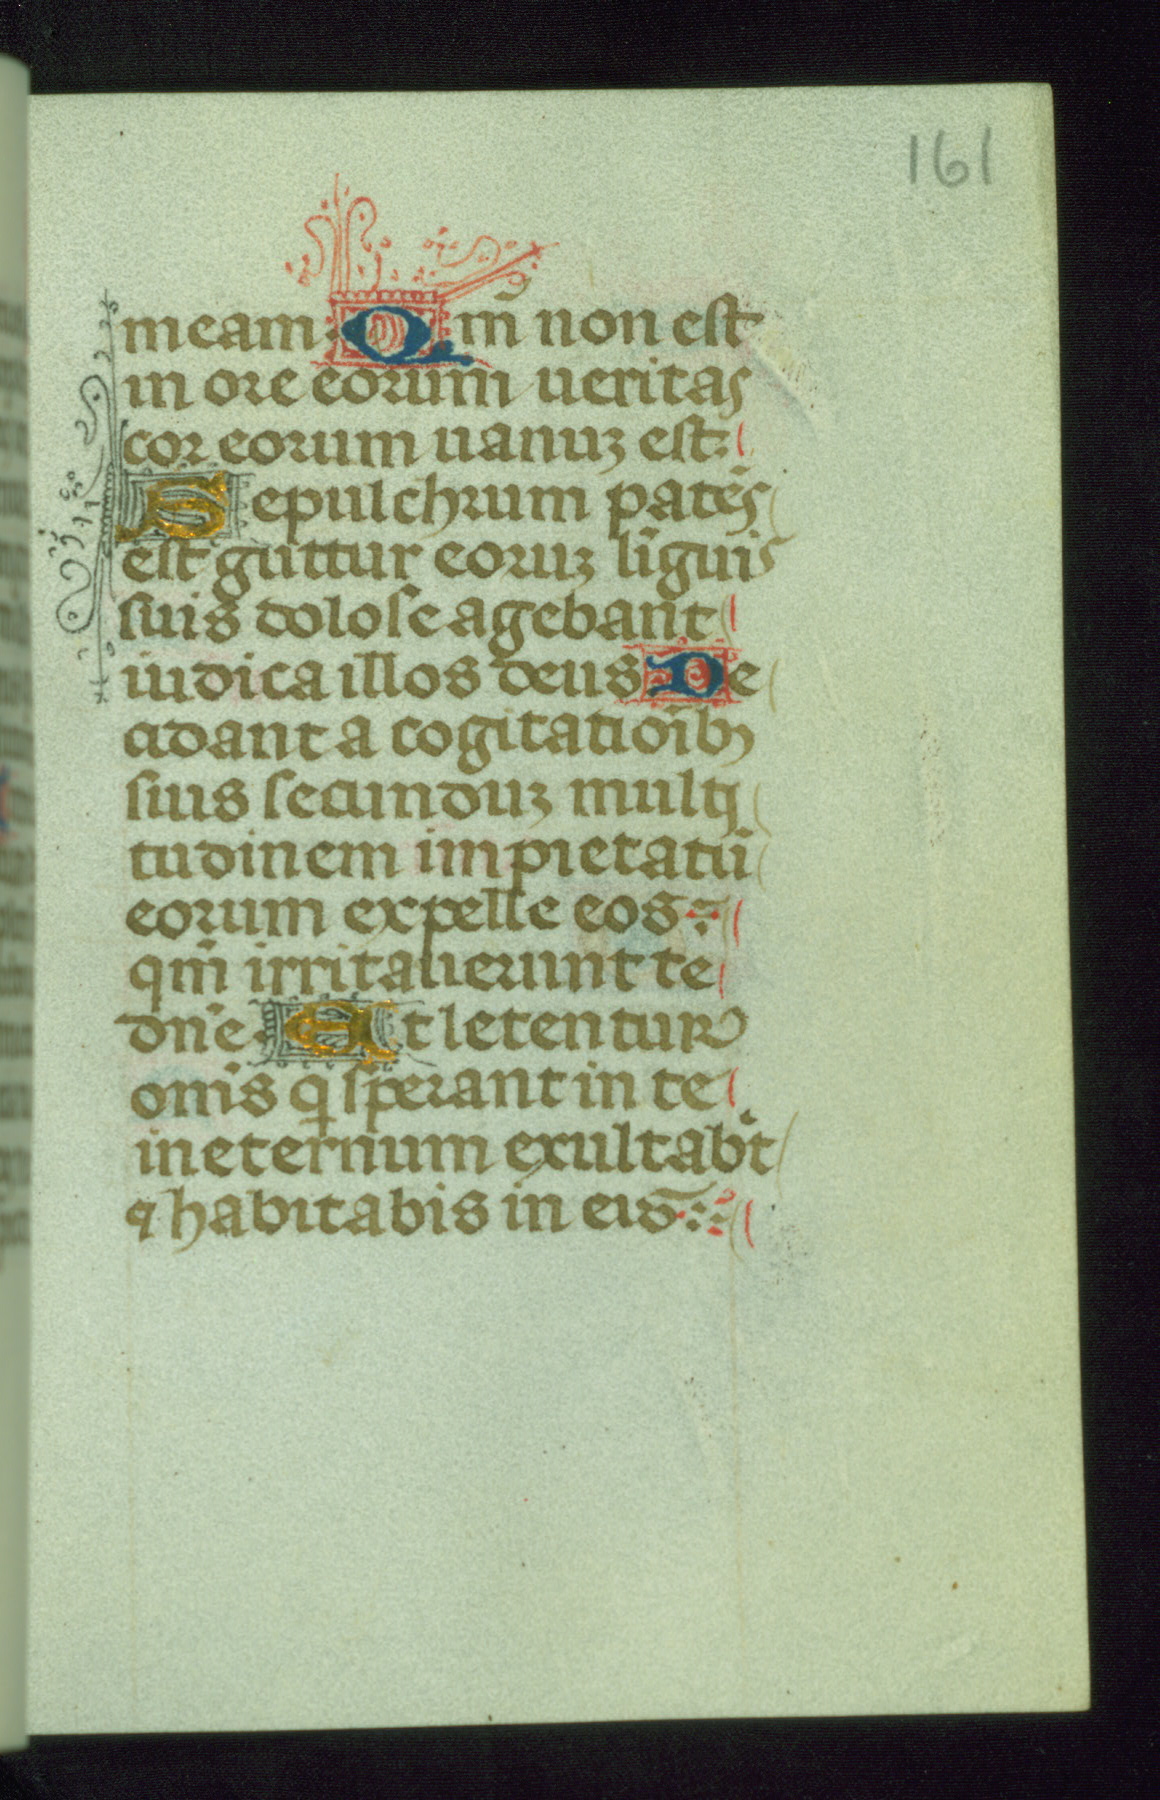 161
meam Qm̄ non est
in ore eorum ueritas
cor eorum uanuꝫ est:
Sepulchrum patēs
est guttur eoruꝫ līguis
suis dolose agebant
iudica illos deus De
cidant a cogitatiōibꝰ
suis secunduꝫ multi
tudinem impietatū
eorum expelle eos:
qm̄ irritauerunt te
dn̄e Et letentur
om̄s q̄ sperant in te
in eternum exultabūt
⁊ habitabis in eis: